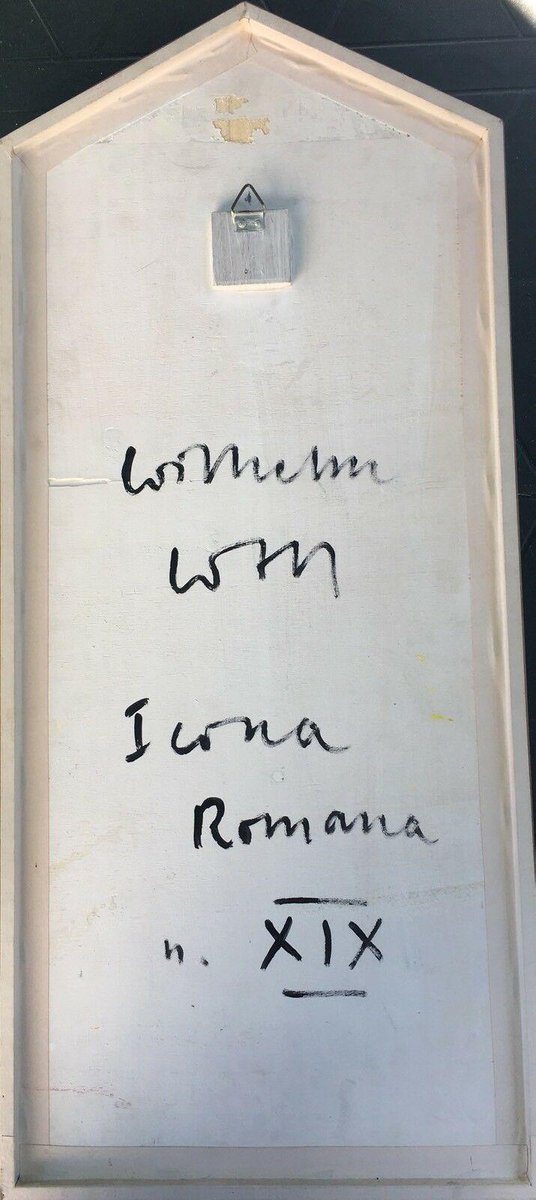 Wilhelm
Icona
Romana
n. XIX